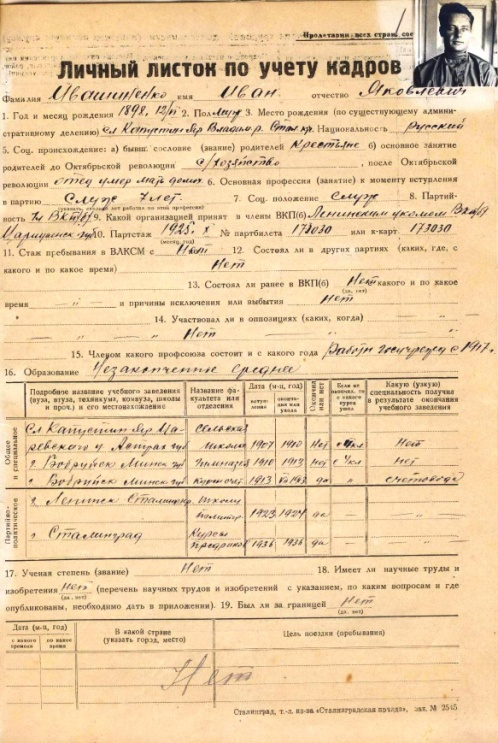 Пролетарии всех стран, сое
Личный листок по учету кадров
Фамилия Иващиненко имя Иван отчество Яковлевич
1. Год и месяц рождения 1898, 12/II 2. Пол Муж 3. Место рождения (по существующему админи-
стративному делению) сл Капустин Яр Владим. р. Стал. кр. Национальность русский
5. Соц. происхождение: а) бывш. сословие (звание) родителей Крестьяне б) основное занятие
родителей до Октябрьской революции с/хозяйство, после Октябрьской
революции отец умер мать домох. 6. Основная профессия (занятие) к моменту вступления
в партию служ 7 лет. 7. Соц. положение служ 8. Партий-
(указать, сколько лет работал по этой профессии)
ность Чл ВКП(б) 9. Какой организацией принят в члены ВКП(б) Ленинским укомом ВКП(б)
Царицынск. губ. 10. Партстаж 1925. X № партбилета 173030 или к-карт. 173030
(месяц, год)
11. Стаж пребывания в ВЛКСМ с Нет 12. Состоял ли в других партиях (каких, где, с
какого и по какое время) Нет
13. Состоял ли ранее в ВКП(б) Нет какого и по какое
(да, нет)
время — " — и причины исключения или выбытия Нет
14. Участвовал ли в оппозициях (каких, когда)
" Нет "
15. Членом какого профсоюза состоит и с какого года Работн госучрежд с 1917 г.
16. Образование Незаконченное среднее
Подробно название учебного заведения (вуза, втуза, техникума, комвуза, школы и проч.) и его местонахождение
Название факультета или отделения
Дата (м-ц, год)
вступления
окончания или ухода
Окончил или нет
Если не окончил, то с какого курса ушел
Какую (узкую) специальность получил в результате окончания учебного заведения
Общее и специальное
сл Капустин Яр Ца- Сельская
ревского у. Астрах губ школа 1907 1910 Нет Нет
г. Бобруйск Минск губ Гимназия 1910 1913 нет Нет
г. Бобруйск Минск губ 1913 да " счетовода
Партийно-политическое
г. Ленинск Сталингр. школу
политгр. 1923 1924 да — "
г. Сталинград Курсы
1936 1936 да — "
17. Ученая степень (звание) Нет 18. Имеет ли научные труды и
изобретения Нет (перечень научных трудов и изобретений с указанием, по каким вопросам и где
(да, нет)
опубликованы, необходимо дать в приложении). 19. Был ли за границей Нет
(да, нет)
Дата (м-ц, год)
с какого времени
по какое время
В какой стране (указать город, место)
Цель поездки (пребывания)
Нет
Сталинград, т.-л. из-ва «Сталинградская правда», зак. № 2545